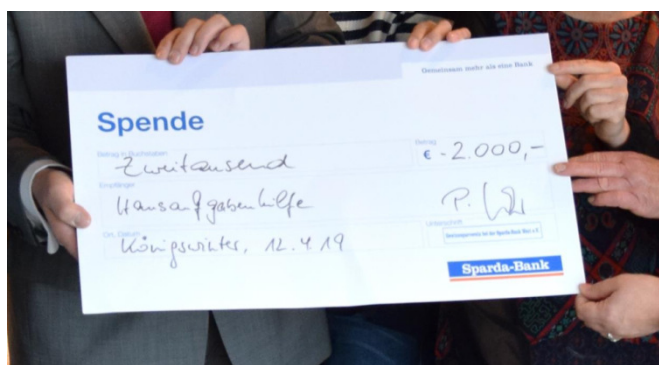 Gemeinsam mehr als eine Bank
Spende
Betrag in Buchstaben
Zweitausend
Betrag
€ -2.000,-
Empfänger
Hausaufgabenhilfe
P.
Ort, Datum
Königswinter, 12.4.19
Unterschrift
bei der Sparda-Bank West e.V.
Sparda-Bank